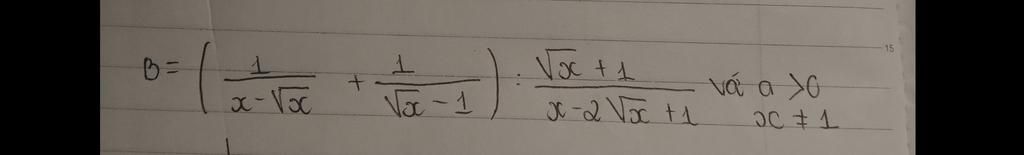 B = ( 1/(x - √x) + 1/(√x - 1) ) : (√x + 1)/(x - 2√x + 1) vá a > 0
x ≠ 1
15